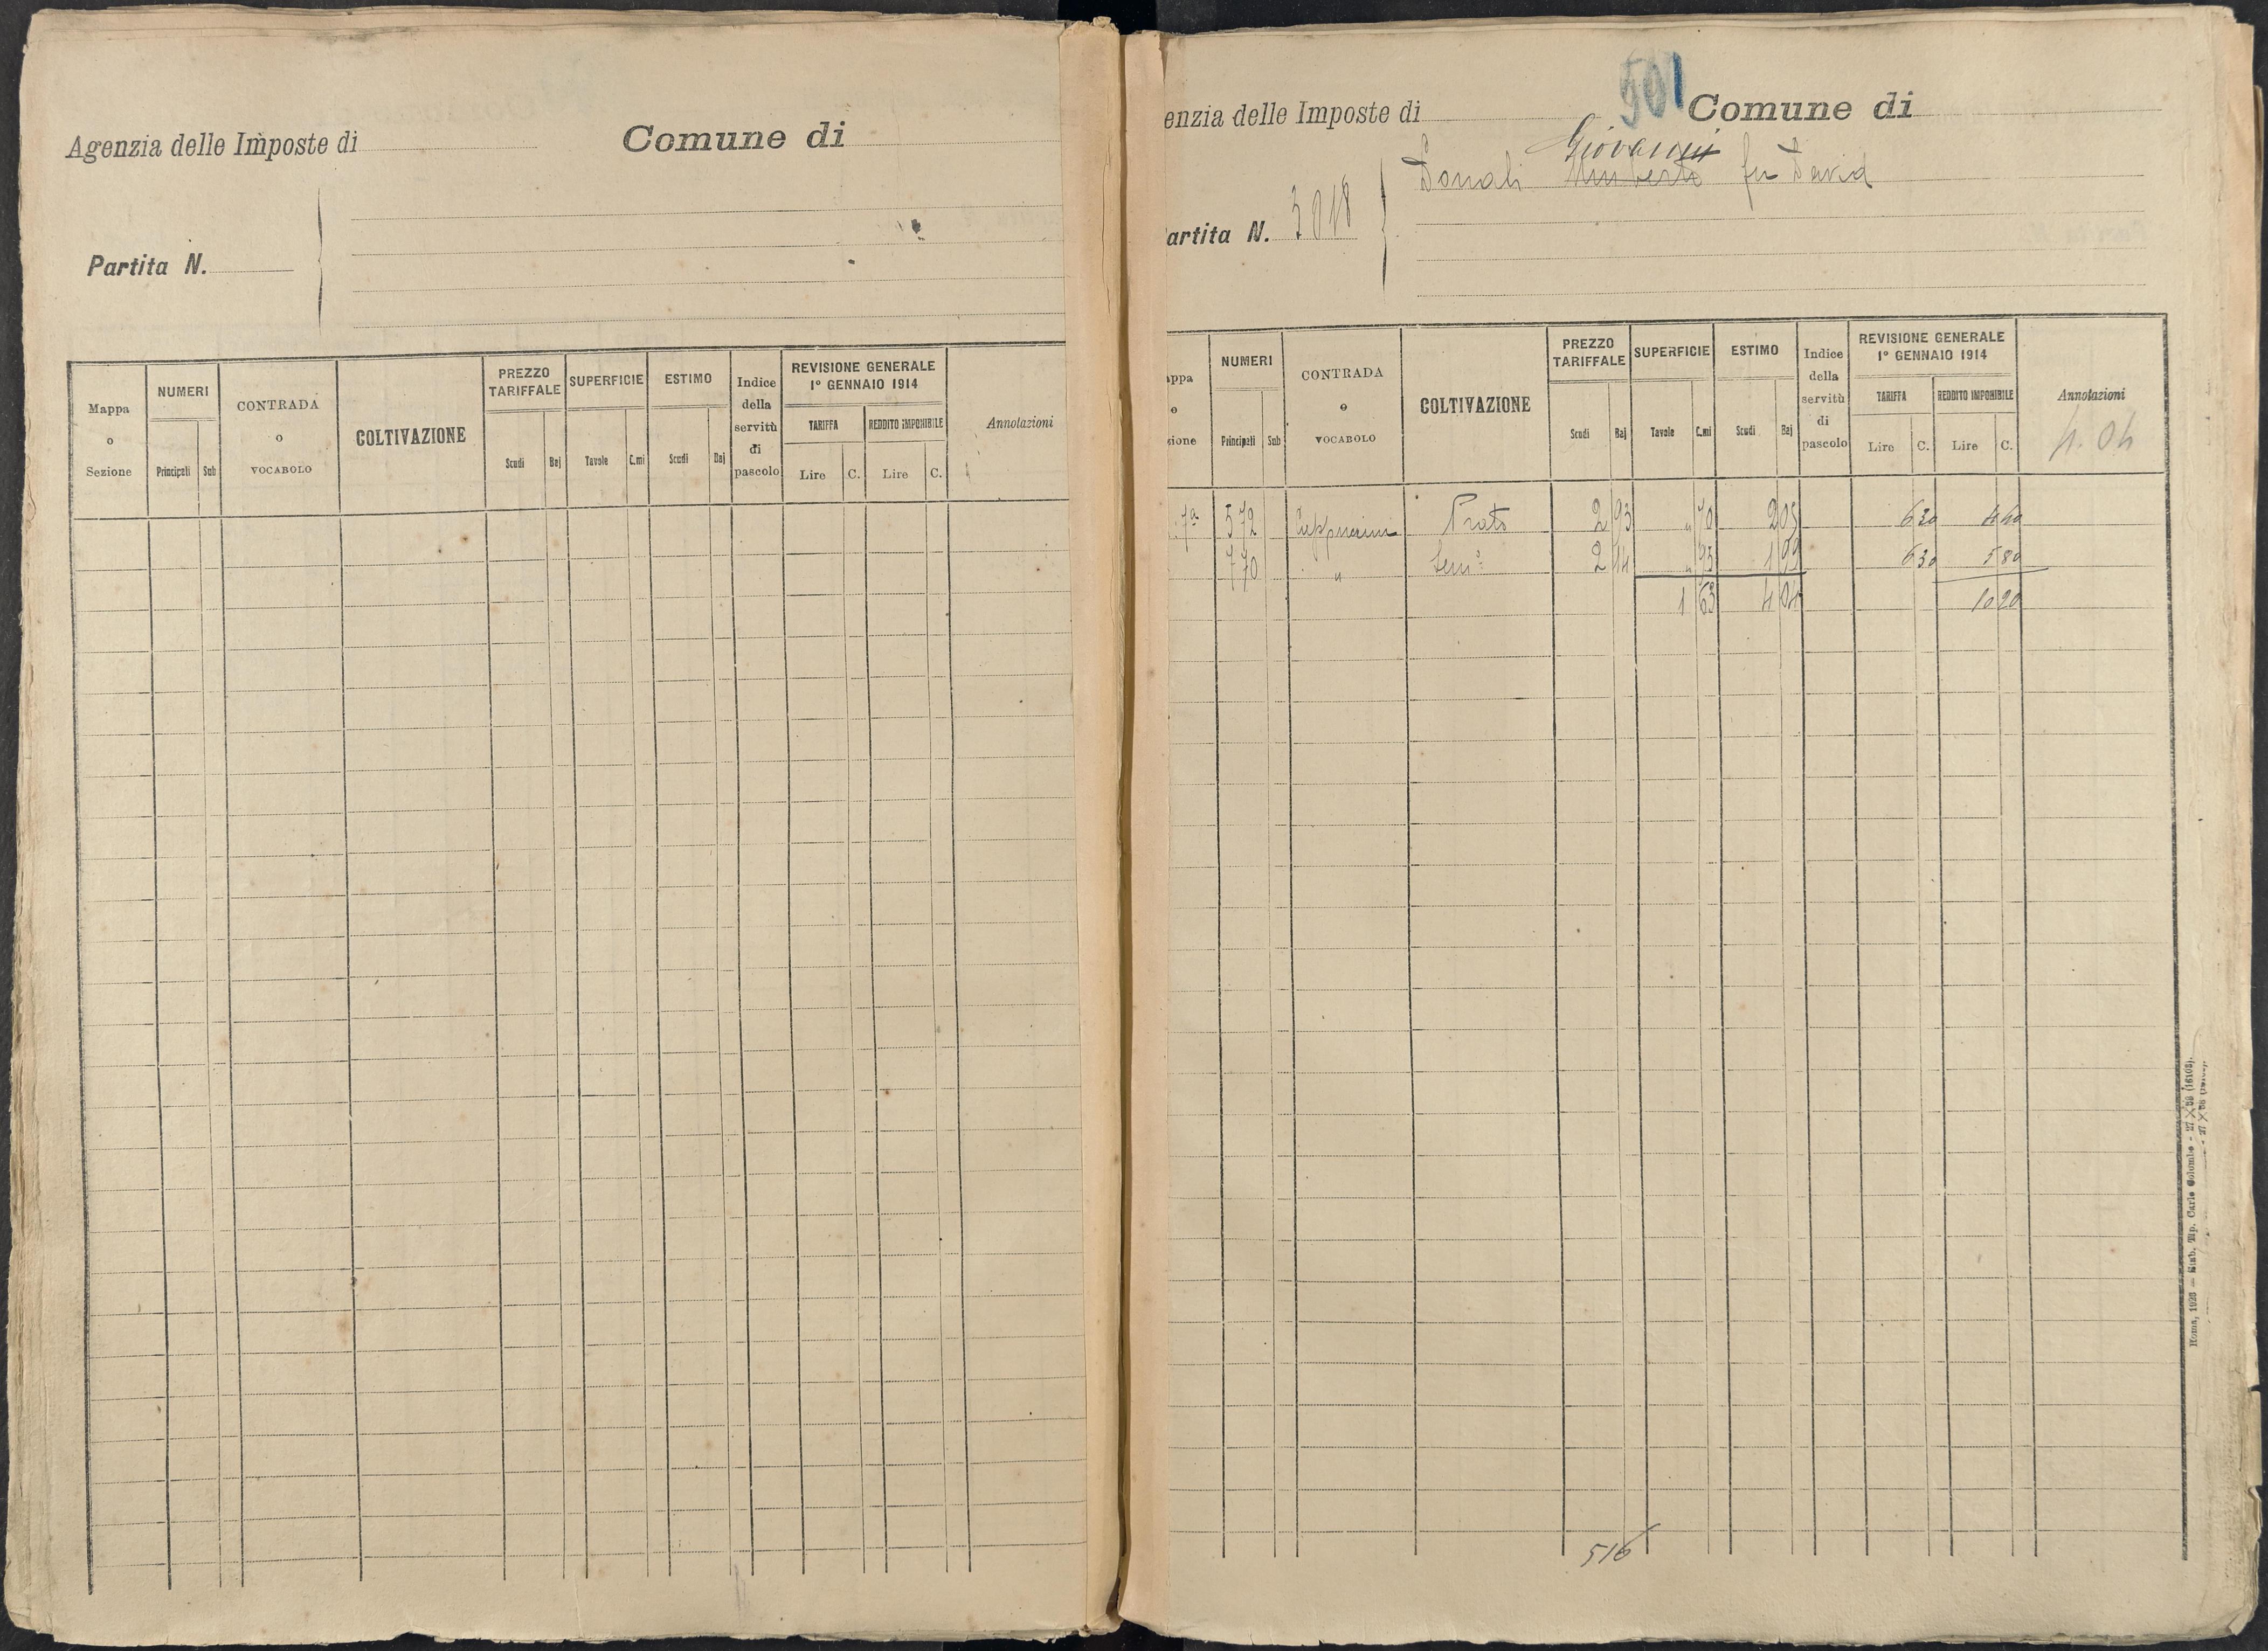 Agenzia delle Imposte di
Comune di
Partita N.
Mappa
o
Sezione
NUMERI
Principali Sub
CONTRADA
o
VOCABOLO
COLTIVAZIONE
PREZZO
TARIFFALE
Scudi Baj
SUPERFICIE
Tavole C.mi
ESTIMO
Scudi Baj
Indice
della
servitù
di
pascolo
REVISIONE GENERALE
1° GENNAIO 1914
TARIFFA REDDITO IMPONIBILE
Lire C. Lire C.
Annotazioni
501
enzia delle Imposte di
Comune di
Giovanni
Donati Umberto fu David
artita N. 3018
appa
o
zione
NUMERI
Principali Sub
CONTRADA
o
VOCABOLO
COLTIVAZIONE
PREZZO
TARIFFALE
Scudi Baj
SUPERFICIE
Tavole C.mi
ESTIMO
Scudi Baj
Indice
della
servitù
di
pascolo
REVISIONE GENERALE
1° GENNAIO 1914
TARIFFA REDDITO IMPONIBILE
Lire C. Lire C.
Annotazioni
4.04
7a 572 Cappuccini Prato 2 93 " 70 2 05 6 30 4 40
770 " Sem° 2 14 " 93 1 99 6 30 5 80
1 63 4 04 10 20
516
Roma, 1926 — Stab. Tip. Carlo Colombo - 27 X 58 (16103).